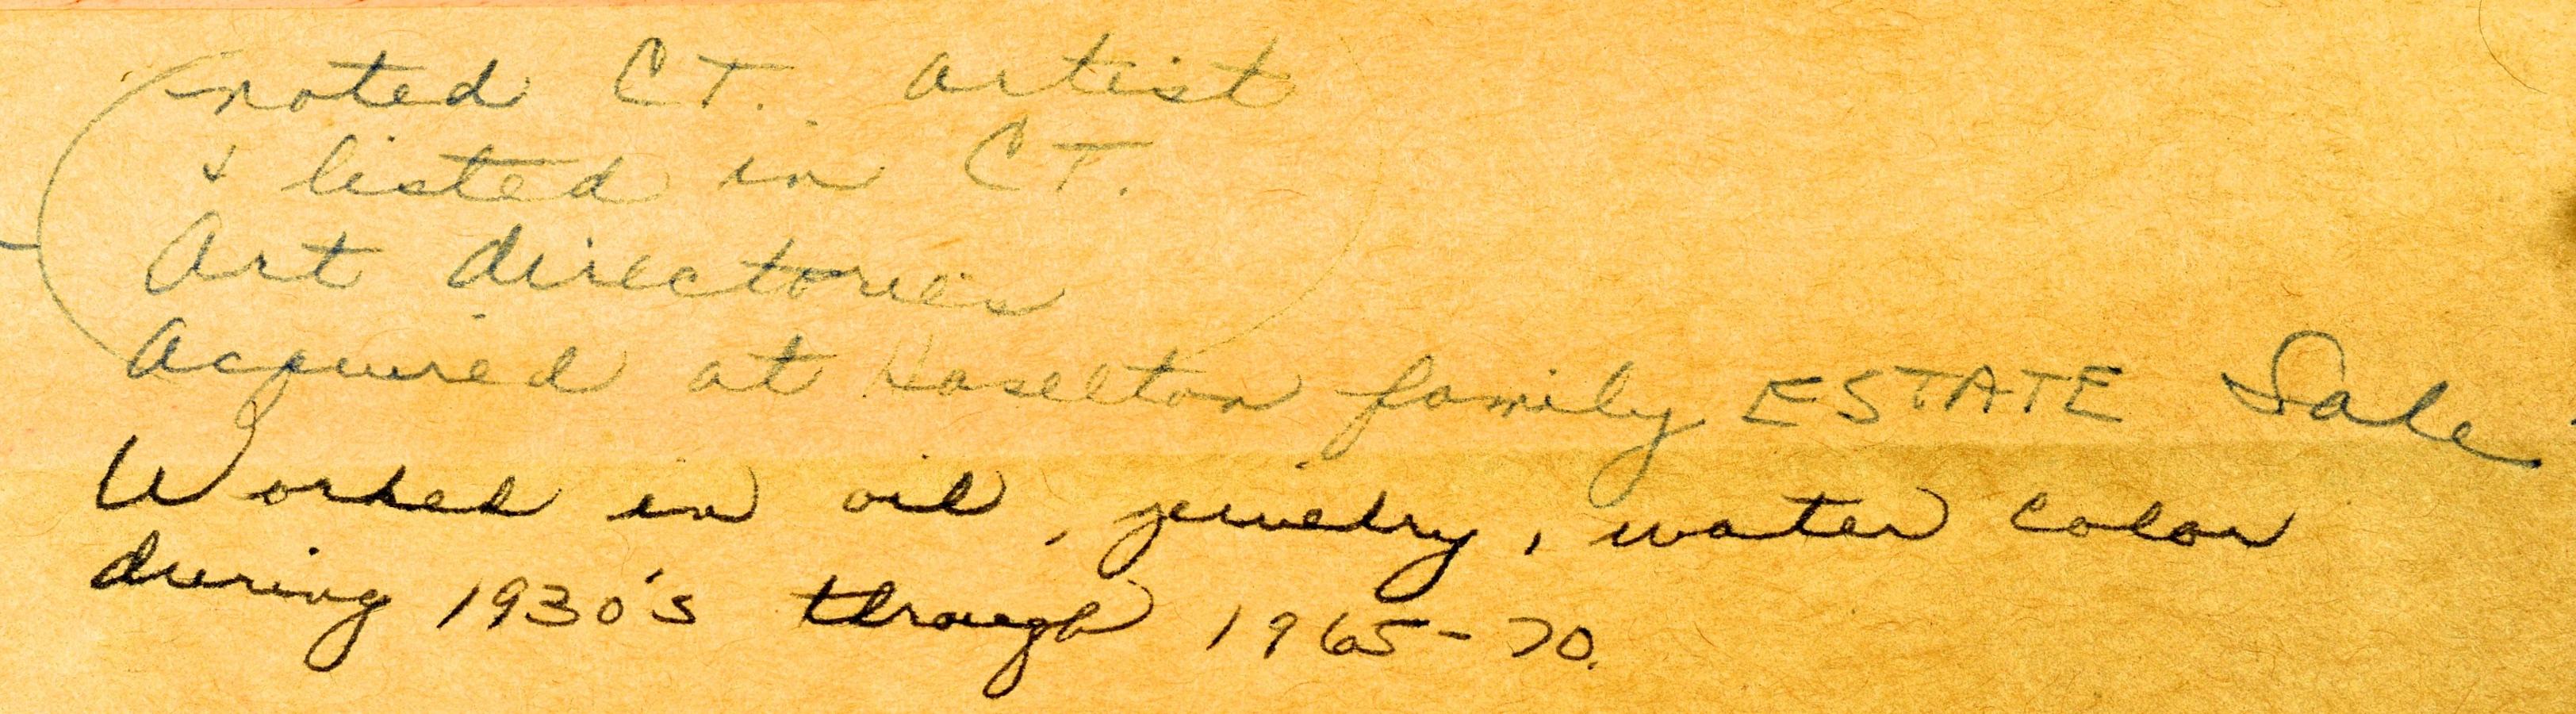 (noted CT. artist
& listed in CT.
Art directories)
Acquired at Haselton family ESTATE Sale.
Worked in oil, jewelry, water color
during 1930's through 1965-70.